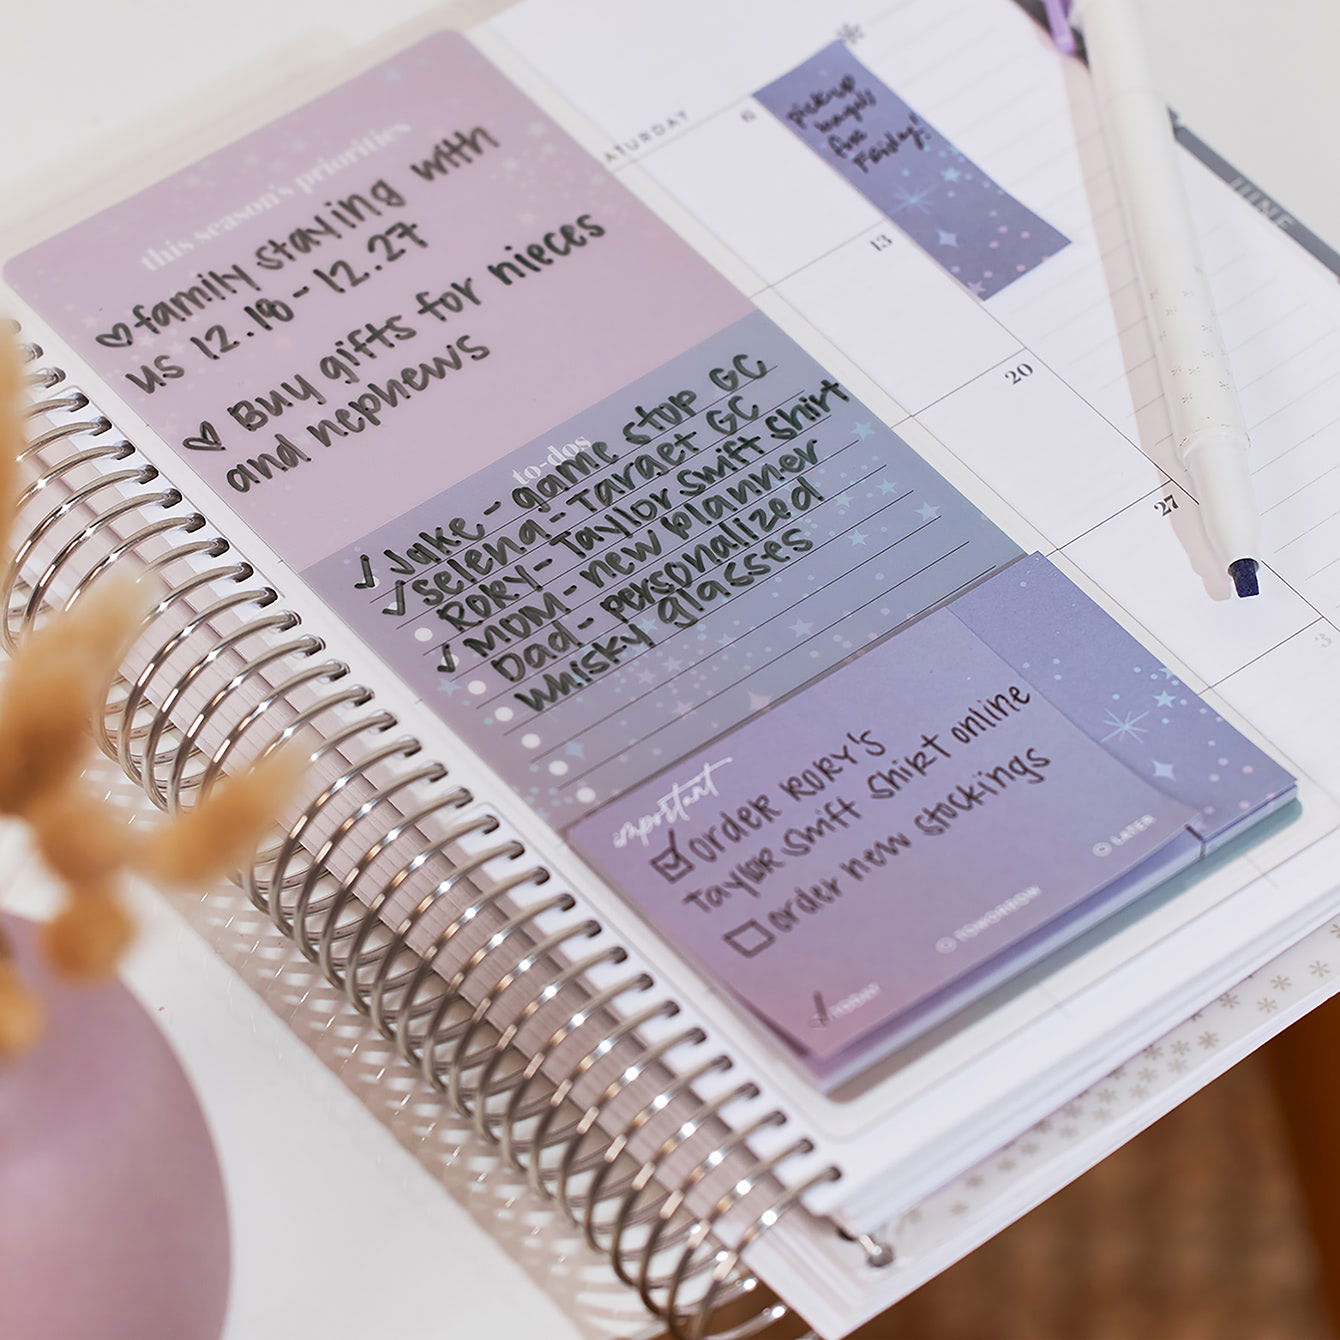 this season's priorities
♡ family staying with
us 12.18 - 12.27
♡ Buy gifts for nieces
and nephews
to-dos
✓ Jake - game stop GC
✓ Selena - Target GC
Rory - Taylor Swift Shirt
✓ Mom - new planner
Dad - personalized
whisky glasses
important
☑ order Rory's
Taylor Swift Shirt online
☐ order new stockings
✓ TODAY
○ TOMORROW
○ LATER
ATURDAY
6
pickup
bagels
for
Friday!
13
20
27
3
JUNE